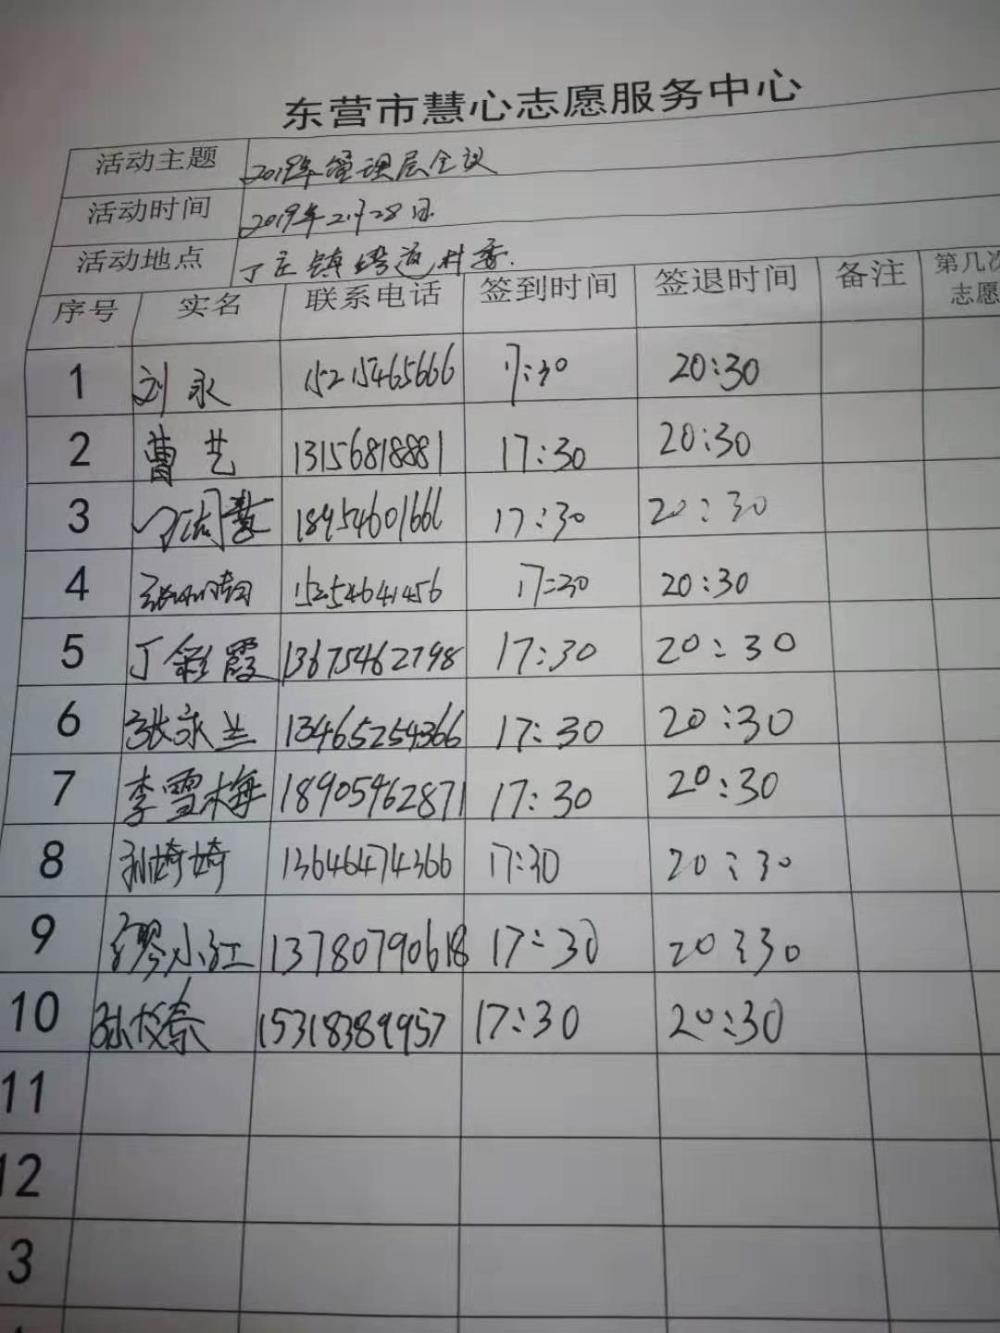 东营市慧心志愿服务中心
活动主题 2019年管理层会议
活动时间 2019年2月28日.
活动地点 丁庄镇 村委.
序号 实名 联系电话 签到时间 签退时间 备注 第几次
志愿
1 刘永 15215465666 17:30 20:30
2 曹艺 13156818881 17:30 20:30
3 18954601666 17:30 20:30
4 15254641456 17:30 20:30
5 丁彩霞 13675462798 17:30 20:30
6 张永兰 13465254366 17:30 20:30
7 李雪梅 18905462871 17:30 20:30
8 孙婍婍 13646474366 17:30 20:30
9 缪小红 13780790618 17:30 20:30
10 15318389957 17:30 20:30
11
12
3